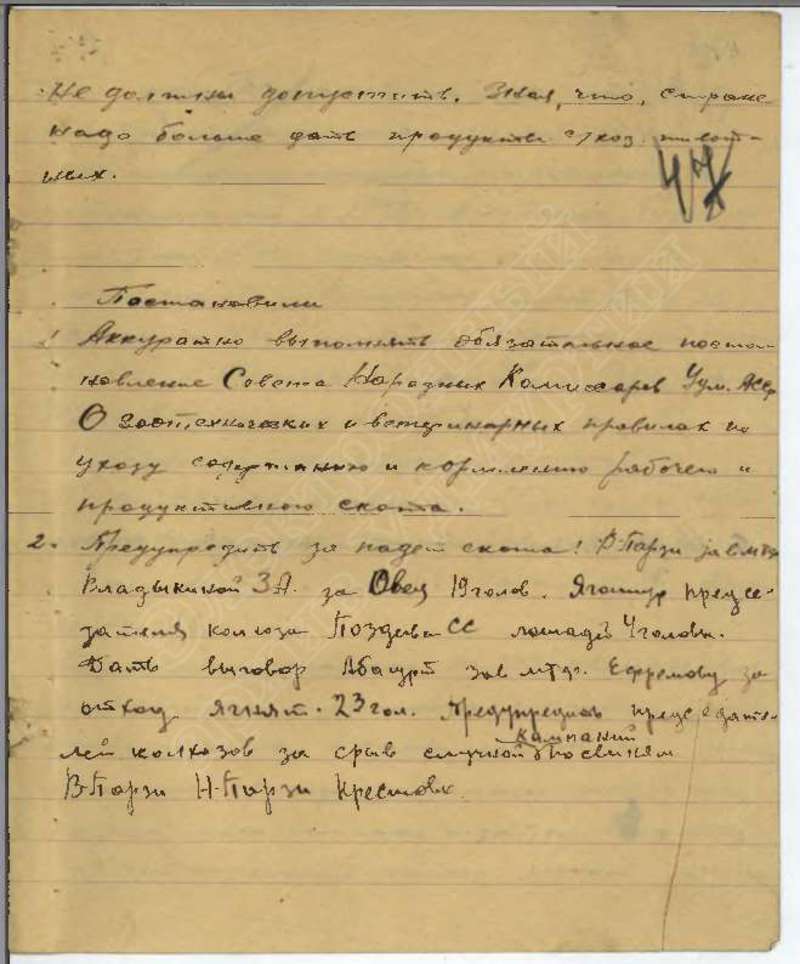 Не должны допустить. Зная, что, стране
надо больше дать продуктов с/хоз. живот-
ных.
47
Постановили
1 Аккуратно выполнять обязательное поста-
новление Совета Народных Комиссаров Удм. АССР
О зоотехнических и ветеринарных правилах по
уходу содержанию и кормлению рабочего и
продуктивного скота.
2. Предупредить за падеж скота! В-Парзи зав МТФ
Владыкиной З.А. за Овец 19 голов. Ягошур предсе-
дателя колхоза Поздеева СС лошадей 4 головы.
Дать выговор Абагурт зав мтф. Ефремову за
отход ягнят. 23 гол. Предупредить председате-
лей колхозов за срыв случной кампаний по свиням
В-Парзи Н-Парзи Крестовк